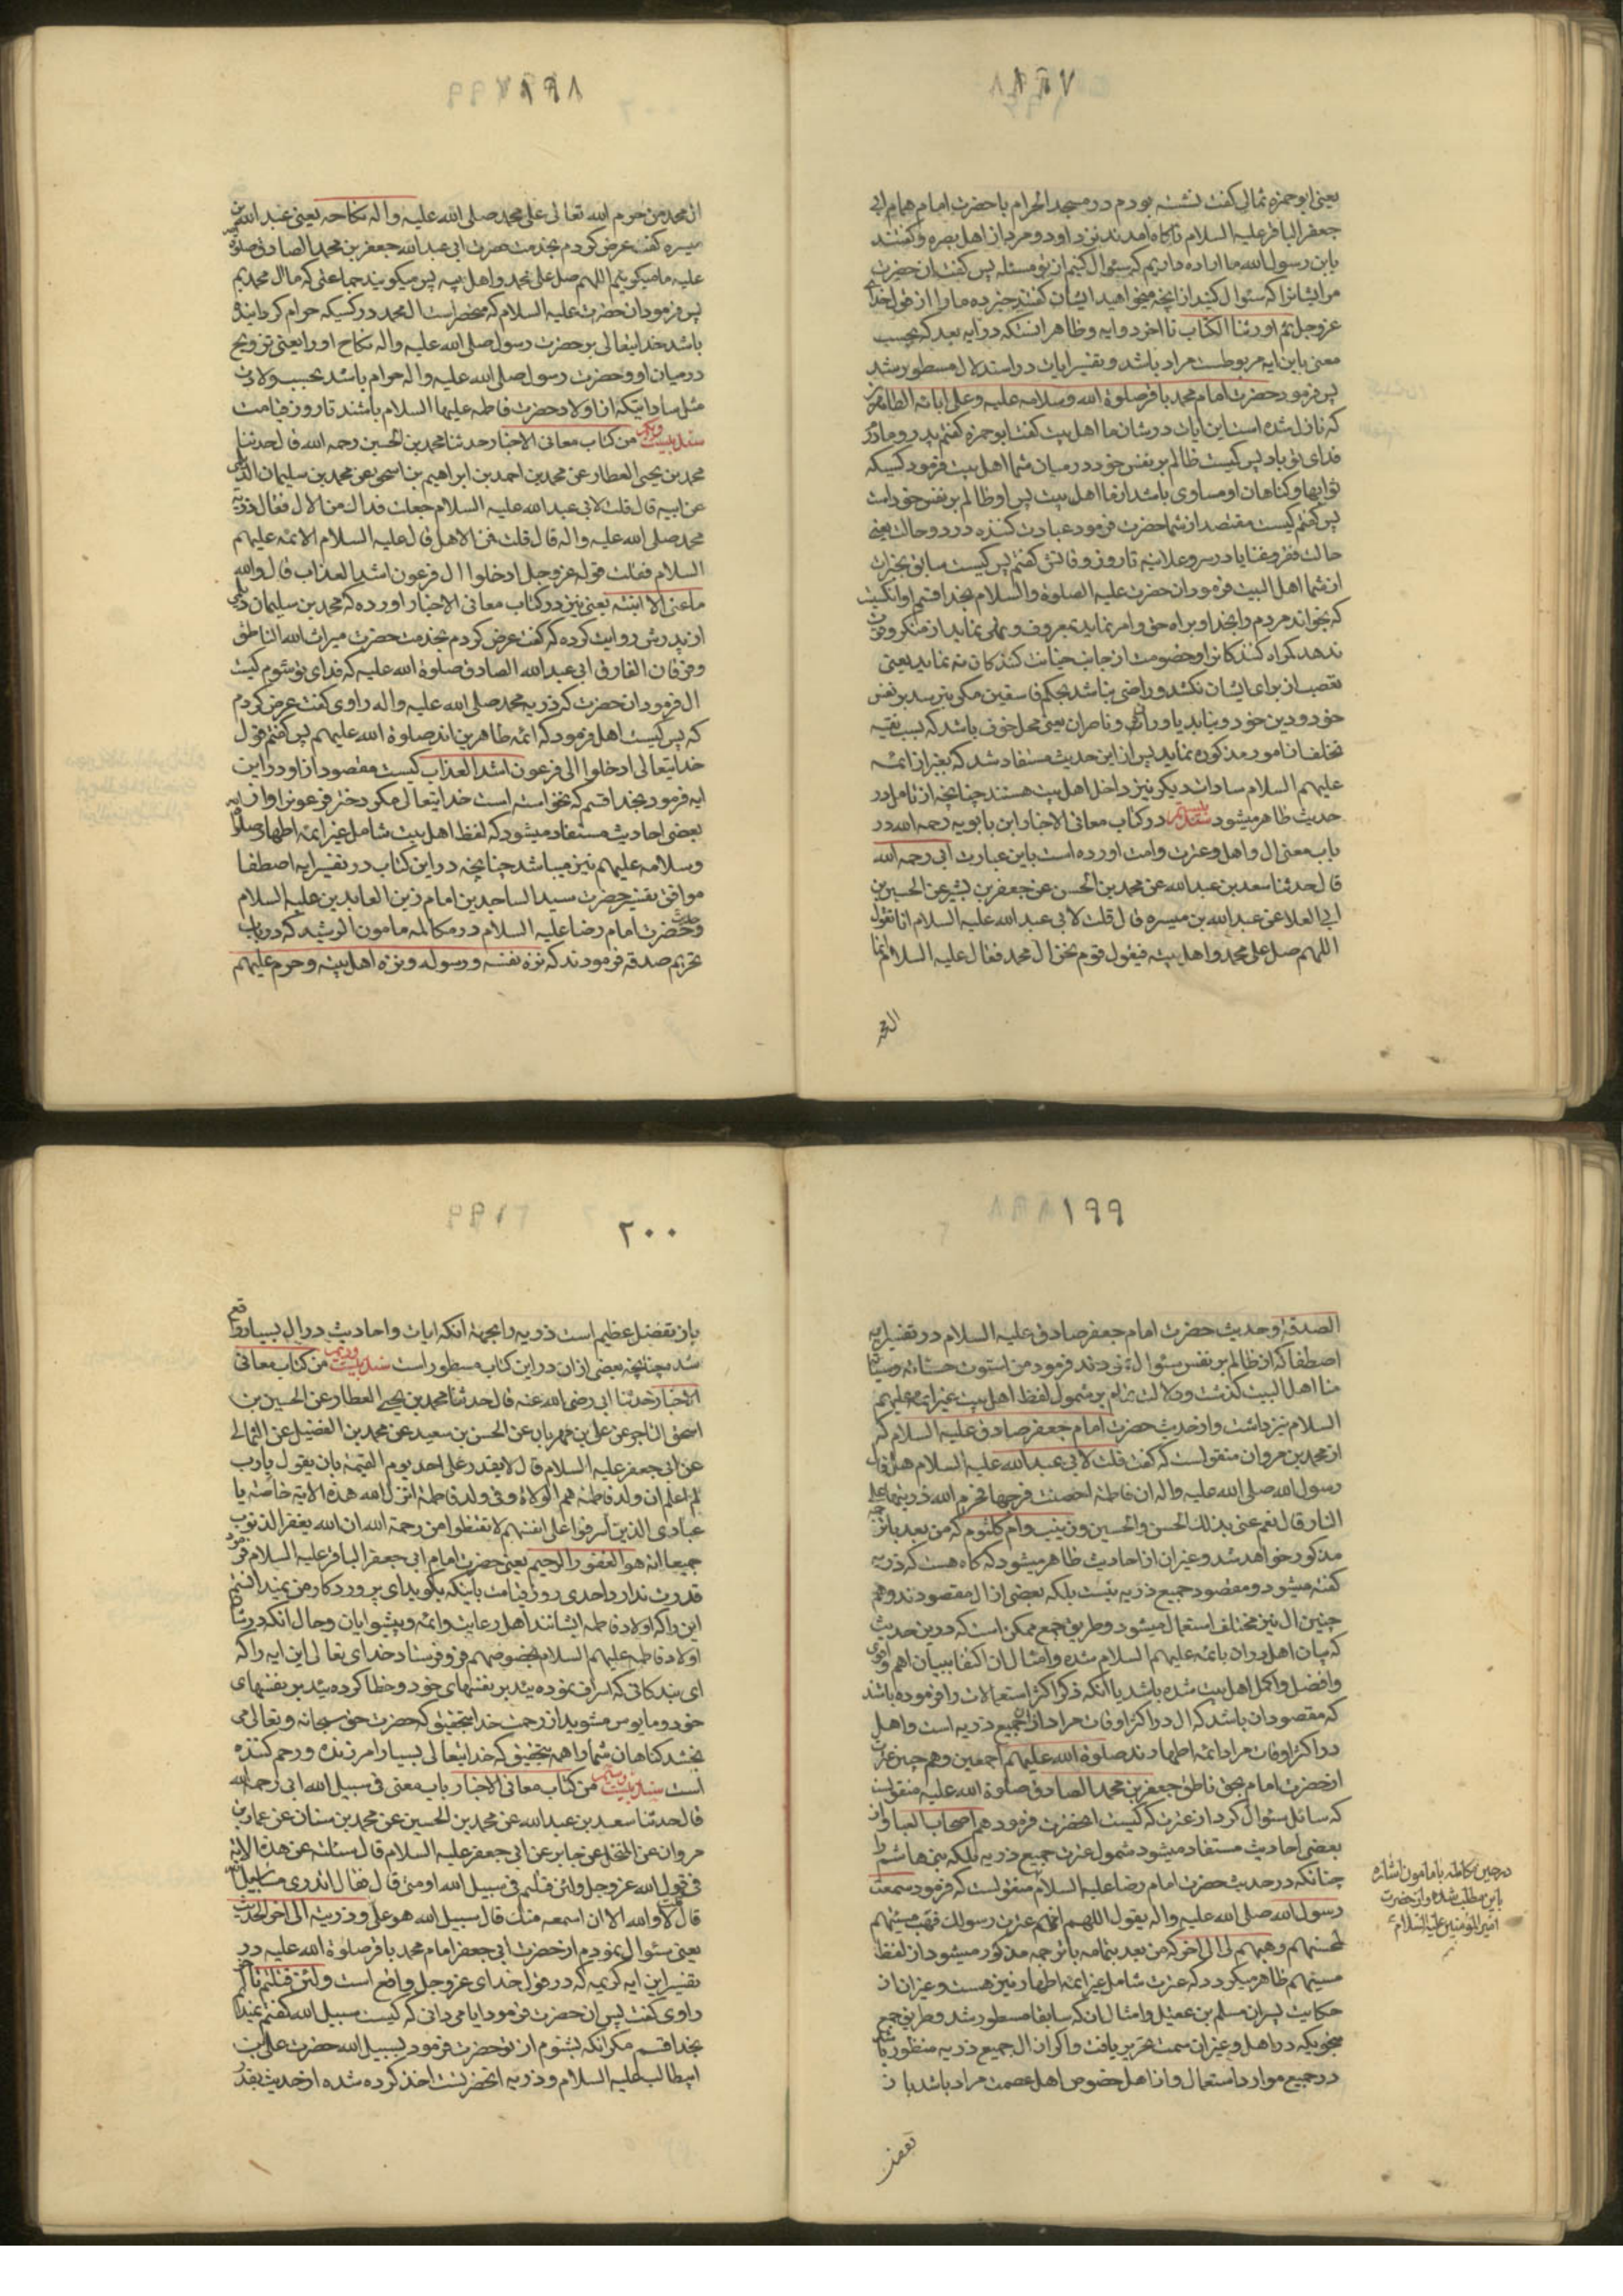 ۱۹۷
یعنی ابو حمزه ثمالی گفت نشسته بودم در مسجد الحرام با حضرت امام همام ابی
جعفر الباقر علیه السلام ناگاه امدند نزد او دو مرد از اهل بصره و گفتند
یابن رسول الله ما اراده داریم که سئوال کنیم از تو مسئله پس گفت ان حضرت
مر ایشانرا که سئوال کنید از انچه میخواهید ایشان گفتند خبر ده ما را از قول خدای
عزوجل ثم اورثنا الکتاب تا اخر دو ایه و ظاهر انستکه دو ایه بعد که بحسب
معنی باین ایه مربوطست مراد باشد و تفسیر ایات در استدلال مسطور شد
پس فرمود حضرت امام محمد باقر صلوة الله وسلامه علیه وعلی ابائه الطاهرین
که نازل شده است این ایات در شان ما اهل بیت گفت ابو حمزه گفتم پدر و مادر
فدای تو باد پس کیست ظالم بر نفس خود در میان شما اهل بیت فرمود کسیکه
ثوابها و کناهان او مساوی باشد از ما اهل بیت پس او ظالم بر نفس خود است
پس گفتم کیست مقتصد از شما حضرت فرمود عبادت کننده در دو حالت یعنی
حالت فقر و غنا یا در سر و علانیه تا روز وفاتش گفتم پس کیست سابق بخیرات
از شما اهل البیت فرمود ان حضرت علیه الصلوة والسلام بخدا قسم او انکیست
که بخواند مردم را بخدا و براه حق و امر نماید بمعروف و نهی نماید از منکر و
ندهد کمراه کنندکانرا و خصومت از جانب خیانت کنندکان نه نماید یعنی
تعصب از برای ایشان نکشد و راضی نباشد بحکم فاسقین مکر بترسد بر نفس
خود و دین خود و نیابد یاوران و ناصران یعنی محل خوف باشد که بسبب تقیه
تخلف از امور مذکوره نماید پس از این حدیث مستفاد شد که بغیر از ائمه
علیهم السلام سادات دیکر نیز داخل اهل بیت هستند چنانچه از تامل در
حدیث ظاهر میشود سند بیستم در کتاب معانی الاخبار ابن بابویه رحمه الله در
باب معنی ال و اهل و عترت و امت اورده است باین عبارت ابی رحمه الله
قال حدثنا سعد بن عبد الله عن محمد بن الحسن عن جعفر بن بشیر عن الحسین بن
ابی العلا عن عبد الله بن میسره قال قلت لابی عبد الله علیه السلام انا نقول
اللهم صل علی محمد و اهل بیته فیقول قوم نحن ال محمد فقال علیه السلام انما
ال محمد
۱۹۸
ال محمد من حرم الله تعالی علی محمد صلی الله علیه واله نکاحه یعنی عبد الله بن
میسره گفت عرض کردم بخدمت حضرت ابی عبد الله جعفر بن محمد الصادق صلوة
علیه ما میکوئیم اللهم صل علی محمد و اهل بیته پس میکویند جماعتی که ما ال محمدیم
پس فرمود ان حضرت علیه السلام که منحصر است ال محمد در کسیکه حرام کردانیده
باشد خدایتعالی بر حضرت رسول صلی الله علیه واله نکاح او را یعنی تزویج
در میان او و حضرت رسول صلی الله علیه واله حرام باشد بحسب ولادت
مثل ساداتیکه از اولاد حضرت فاطمه علیها السلام باشند تا روز قیامت
سند بیست ویکم من کتاب معانی الاخبار حدثنا محمد بن الحسین رحمه الله قال حدثنا
محمد بن یحیی العطار عن محمد بن احمد بن ابراهیم بن اسحق عن محمد بن سلیمان الدیلمی
عن ابیه قال قلت لابی عبد الله علیه السلام جعلت فداک من الال فقال ذریة
محمد صلی الله علیه واله قال قلت فمن الاهل قال علیه السلام الائمة علیهم
السلام فقلت قوله عزوجل ادخلوا ال فرعون اشد العذاب قال والله
ما عنی الا ابنته یعنی نیز در کتاب معانی الاخبار اورده که محمد بن سلیمان دیلمی
از پدرش روایت کرده که گفت عرض کردم بخدمت حضرت میراث الله الناطق
و فرقان الفارق ابی عبد الله الصادق صلوة الله علیه که فدای تو شوم کیست
ال فرمود ان حضرت که ذریه محمد صلی الله علیه واله راوی گفت عرض کردم
که پس کیست اهل فرمود که ائمه طاهرین اند صلوة الله علیهم پس گفتم قول
خدایتعالی ادخلوا ال فرعون اشد العذاب کیست مقصود از او در این
ایه فرمود بخدا قسم که نخواسته است خدایتعالی مکر دختر فرعون را و از
بعضی احادیث مستفاد میشود که لفظ اهل بیت شامل غیر ائمه اطهار صلوة
وسلامه علیهم نیز میباشد چنانچه در این کتاب در تفسیر ایه اصطفا
موافق تفسیر حضرت سید الساجدین امام زین العابدین علیه السلام
و حضرت امام رضا علیه السلام در مکالمه مامون الرشید که در باب
تحریم صدقه فرمودند که نزه نفسه و رسوله و نزه اهل بیته و حرم علیهم
۱۹۹
الصدقة و حدیث حضرت امام جعفر صادق علیه السلام در تفسیر ایه
اصطفا که از ظالم بر نفس سئوال کردند فرمود من استوت حسناته وسیئاته
منا اهل البیت کذشت و دلالت تمام بر شمول لفظ اهل بیت غیر ائمه علیهم
السلام نیز داشت و از حدیث حضرت امام جعفر صادق علیه السلام که
از محمد بن مروان منقولست که گفت قلت لابی عبد الله علیه السلام هل قال
رسول الله صلی الله علیه واله ان فاطمة احصنت فرجها فحرم الله ذریتها علی
النار قال نعم عنی بذلک الحسن والحسین وزینب وام کلثوم که من بعد باترجمه
مذکور خواهد شد و غیر ان از احادیث ظاهر میشود که کاه هست که ذریه
گفته میشود و مقصود جمیع ذریه نیست بلکه بعضی از ال مقصودند و هم
چنین ال نیز مختلف استعمال میشود و طریق جمع ممکن است که در این حدیث
که بیان اهل در ان بائمه علیهم السلام شده و امثال ان اکتفا ببیان اهم و
و افضل و اکمل اهل بیت شده باشد یا انکه ذکر اکثر استعمالات را فرموده باشد
که مقصود ان باشد که ال در اکثر اوقات مراد از ان جمیع ذریه است و اهل
در اکثر اوقات مراد ائمه اطهارند صلوة الله علیهم اجمعین و هم چنین عترت
از حضرت امام بحق ناطق جعفر بن محمد الصادق صلوة الله علیه منقولست
که سائل سئوال کرد از عترت که کیست انحضرت فرمود هم اصحاب العبا و از
بعضی احادیث مستفاد میشود شمول عترت جمیع ذریه بلکه بنی هاشم را
چنانکه در حدیث حضرت امام رضا علیه السلام منقولست که فرمود سمعت
رسول الله صلی الله علیه واله یقول اللهم انهم عترت رسولک فهب مسیئهم
لمحسنهم وهبهم لی الی اخر که من بعد بتمامه باترجمه مذکور میشود از لفظ
مسیئهم ظاهر میکردد که عترت شامل غیر ائمه اطهار نیز هست و غیر ان از
حکایت پسران مسلم بن عقیل و امثال ان که سابقا مسطور شد و طریق جمع
بنحویکه در اهل و غیر ان سمت تحریر یافت و اکر از ال جمیع ذریه منظور باشد
در جمیع موارد استعمال و از اهل خصوص اهل عصمت مراد باشد باز
در حین مکالمه با مامون اشاره
باین مطلب شده و از حضرت
امیر المؤمنین علیه السلام
۲۰۰
باز تفضل عظیم است ذریه را بجهة انکه ایات و احادیث در ال بسیار واقع
شده چنانچه بعضی از ان در این کتاب مسطور است سند بیست ودویم من کتاب معانی
الاخبار حدثنا ابی رضی الله عنه قال حدثنا محمد بن یحیی العطار عن الحسین بن
اسحق التاجر عن علی بن مهزیار عن الحسن بن سعید عن محمد بن الفضیل عن الثمالی
عن ابی جعفر علیه السلام قال لا یقدر علی احد یوم القیمة بان یقول یا رب
لم اعلم ان ولد فاطمة هم الولاة وفی ولد فاطمة انزل الله هذه الایة خاصة یا
عبادی الذین اسرفوا علی انفسهم لا تقنطوا من رحمة الله ان الله یغفر الذنوب
جمیعا انه هو الغفور الرحیم یعنی حضرت امام ابی جعفر الباقر علیه السلام فرمود
قدرت ندارد احدی روز قیامت باینکه بکوید ای پروردکار من نمیدانستم
این را که اولاد فاطمه ایشانند اهل رعایت و ائمه و پیشوایان و حال انکه در شان
اولاد فاطمه علیهم السلام بخصوصهم فرو فرستاد خدای تعالی این ایه را که
ای بندکانی که اسراف نموده ئید بر نفسهای خود و خطا کرده ئید بر نفسهای
خود و مایوس مشوید از رحمت خدا بتحقیق که حضرت حق سبحانه و تعالی می
بخشد کناهان شما را همه بتحقیق که خدایتعالی بسیار امرزنده و رحم کننده
است سند بیست وسیم من کتاب معانی الاخبار باب معنی فی سبیل الله ابی رحمه الله
قال حدثنا سعد بن عبد الله عن محمد بن الحسین عن محمد بن سنان عن عمار بن
مروان عن المنخل عن جابر عن ابی جعفر علیه السلام قال سئلته عن هذه الایة
فی قول الله عزوجل ولئن قتلتم فی سبیل الله او متم قال فقال اتدری ما سبیل الله
قال قلت لا والله الا ان اسمعه منک قال سبیل الله هو علی وذریته الی اخر الحدیث
یعنی سئوال نمودم از حضرت ابی جعفر امام محمد باقر صلوة الله علیه در
تفسیر این ایه کریمه که در قول خدای عزوجل واقع است ولئن قتلتم تا اخر
راوی گفت پس ان حضرت فرمود ایا می دانی که کیست سبیل الله گفتم نمیدانم
بخدا قسم مکر انکه بشنوم از تو حضرت فرمود سبیل الله حضرت علی بن
ابیطالب علیه السلام و ذریه انحضرتست اخذ کرده شده از حدیث بقدر